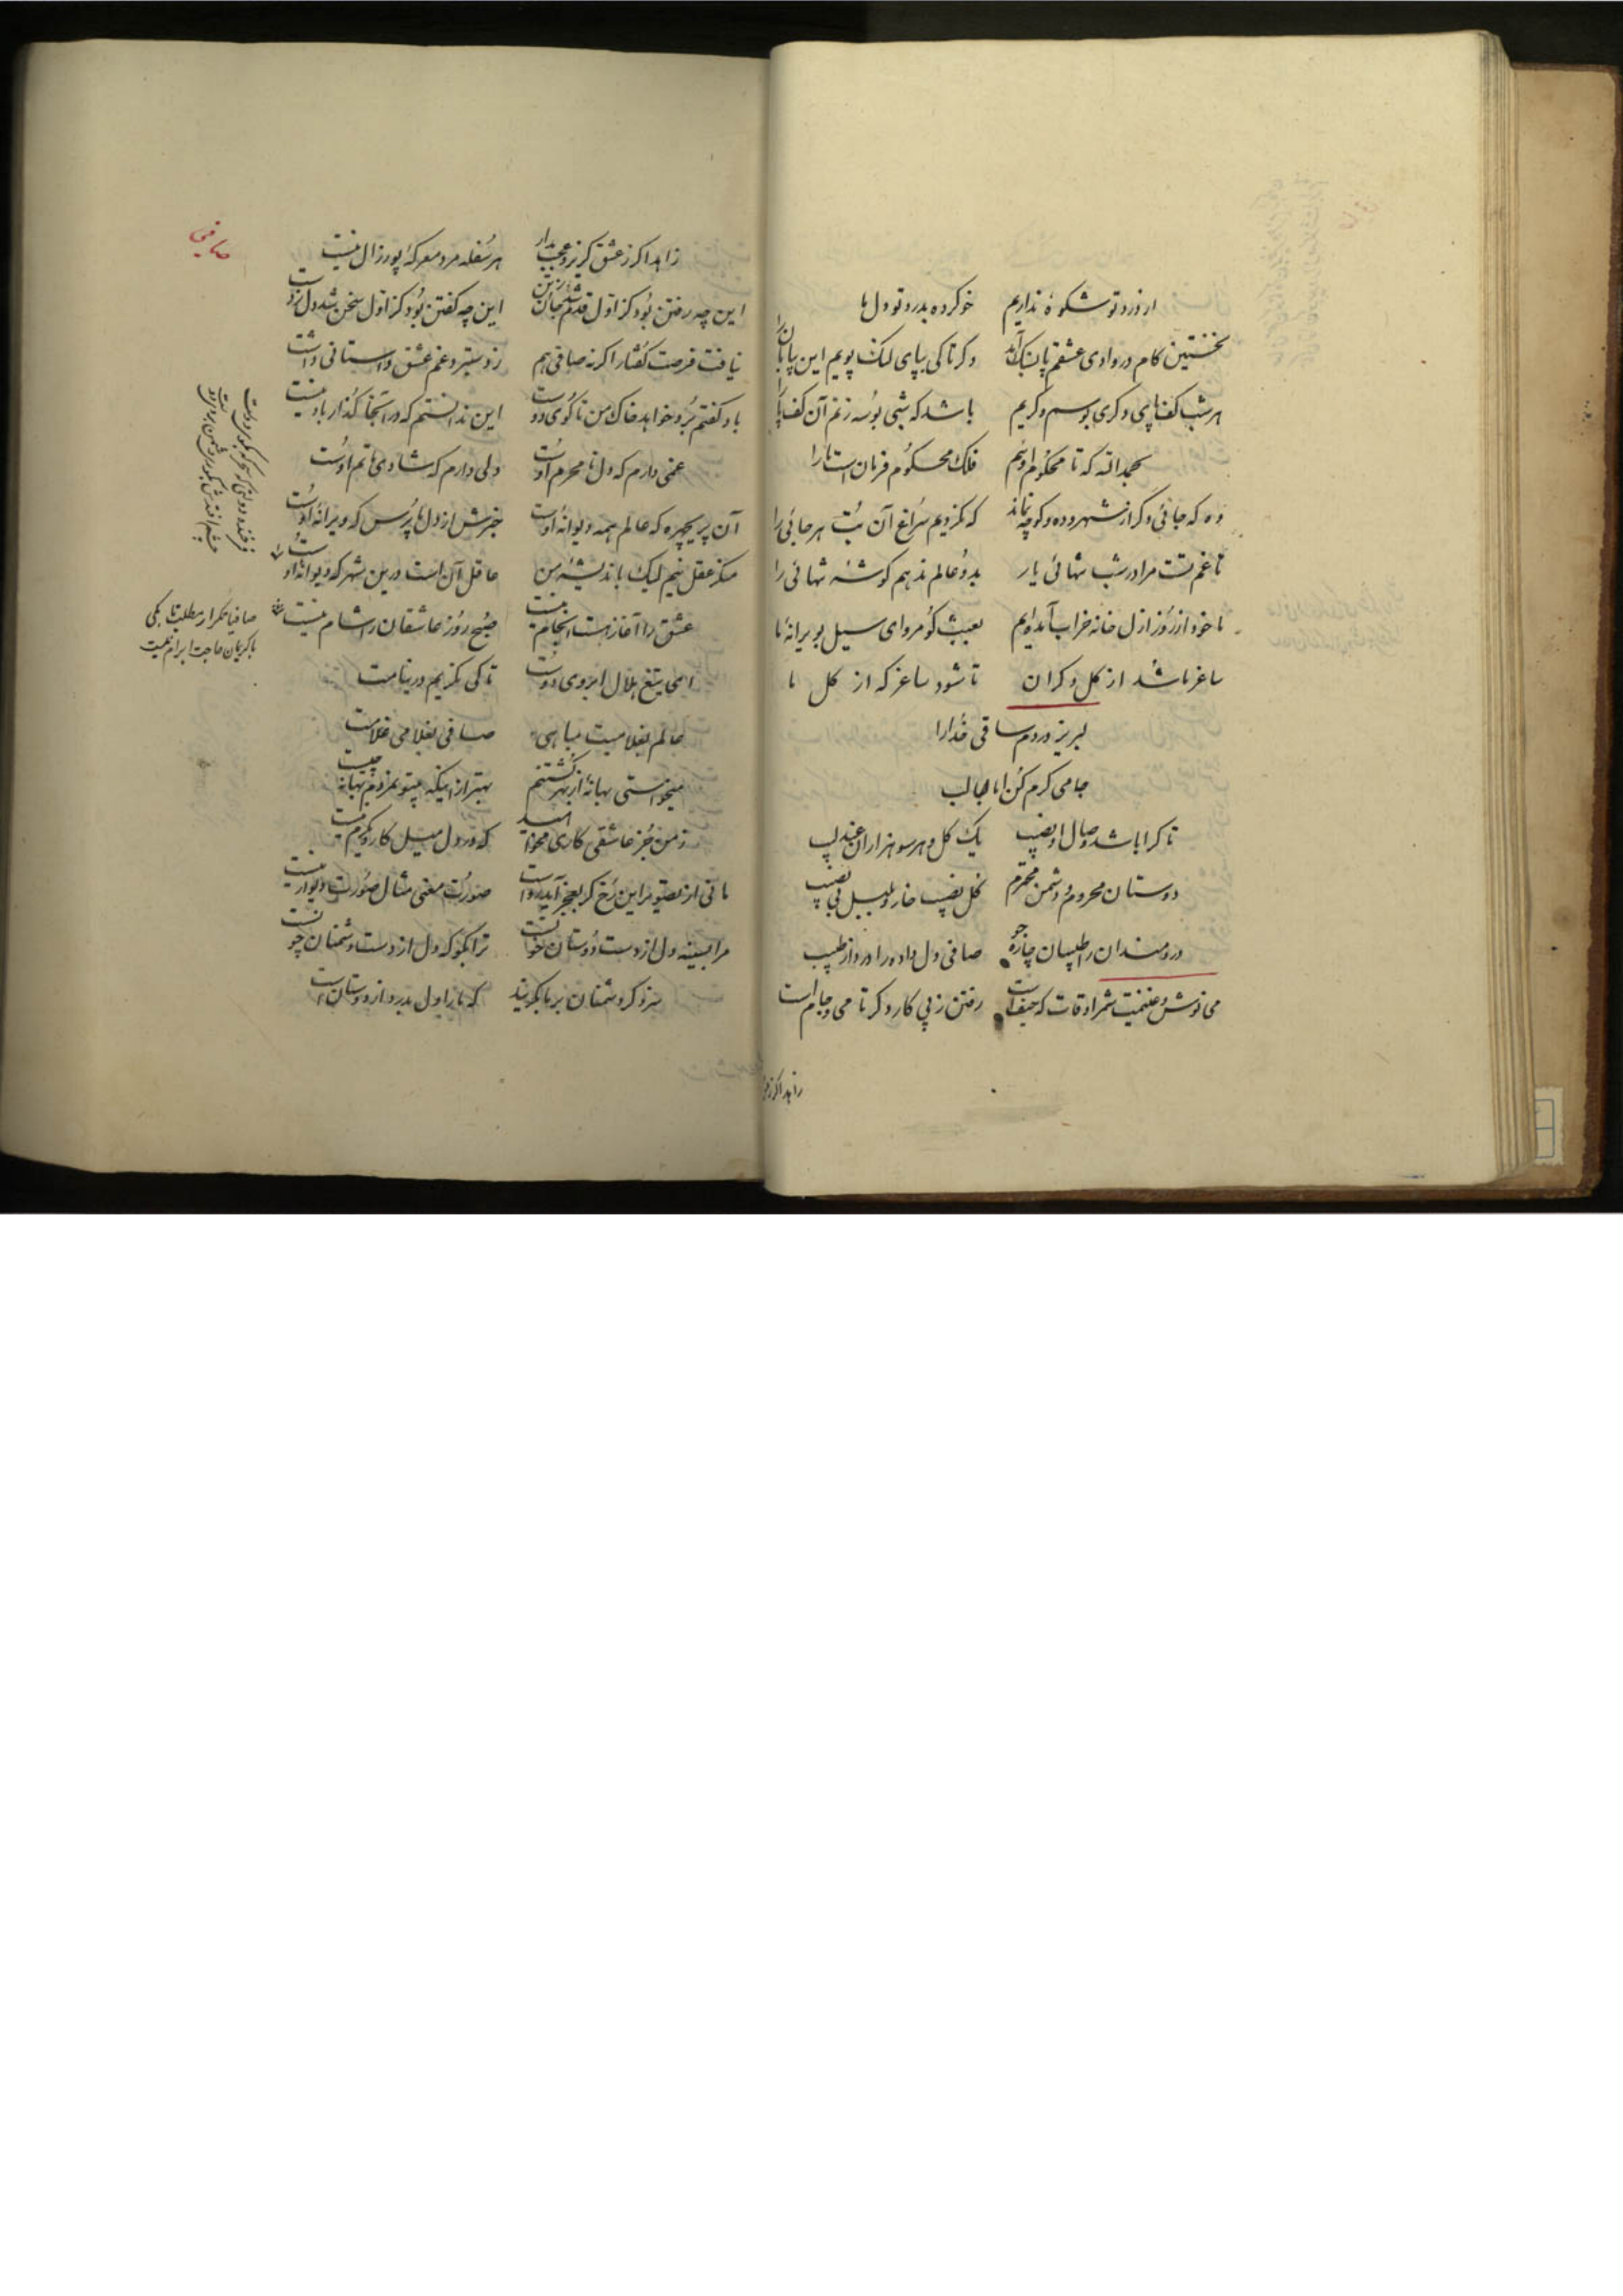 از درد تو شکوهٔ نداریم خو کرده بدرد تو دل ما
نخستین کام در وادی عشقم پا بسنک آمد دکر تا کی بپای لنک پویم این بیابان را
هر شب کف پای دکری بوسم و کریم باشد که شبی بوسه زنم آن کف پا را
بحمدالله که تا محکوم اویم فلک محکوم فرمان است ما را
وه که جائی دکر از شهر و ده و کوچه نماند که نکردیم سراغ آن بت هر جائی را
تا غم تست مرا در شب تنهائی یار بدو عالم ندهم کوشهٔ تنهائی را
ما خود از روز ازل خانه خراب آمده‌ایم بعبث کو مرو ای سیل بویرانهٔ ما
ساغر ما شد از کل دکران تا شود ساغر که از کل ما
لبریز دردم ساقی خدارا
جامی کرم کن
تا کرا باشد وصال او نصیب یک کل و هر سو هزاران عندلیب
دوستان محروم و دشمن محترم کل نصیب خار و بلبل بی نصیب
دردمندان را طبیبان چاره جو صافی دل داده را درد از طبیب
می نوش و غنیمت شمر اوقات که حیف است رفتن ز پی کار دکر تا می و جام است
زاهد اکر ز
صافی
زاهد اکر ز عشق کریزد عجب مدار هر سفله مرد معرکهٔ پور زال نیست
این چه رفتن بود کز اول قدم شد جان ز تن این چه کفتن بود کز اول سخن شد دل ز دست
نیافت فرصت کفتار اکر نه صافی هم ز دستبرد غم عشق داستانی داشت
باد کفتم برد خواهد خاک من تا کوی دوست این ندانستم که در آنجا کذار باد نیست
غمی دارم که دل‌ها محرم اوست دلی دارم که شادی ماتم اوست
آن پریچهره که عالم همه دیوانهٔ اوست خبرش از دل ما پرس که ویرانهٔ اوست
منکر عقل نیم لیک باندیشهٔ من عاقل آن است درین شهر که دیوانهٔ اوست
عشق را آغاز هست انجام نیست صبح روز عاشقان را شام نیست
صافیا تکرار مطلب تا بکی
با کریمان حاجت ابرام نیست
ای تیغ هلال ابروی دوست تا کی نکریم در نیامت
عالم بغلامیت مباهی صافی بغلامی غلامت
میخواستی بهانهٔ از بهر کشتنم بهتر از اینکه بیتو نمردم بهانه چیست
ز من جز عاشقی کاری مخواهید که در دل میل کار دیکرم نیست
مانی ار تصویر این رخ کر بعجز آید رواست صورت معنی مثال صورت دیوار نیست
مرا بسینه دل از دست دوستان خونست ترا بکو که دل از دست دشمنان چونست
سزد کر دشمنان بر ما بکریند که ما را دل بدرد از دوستان است